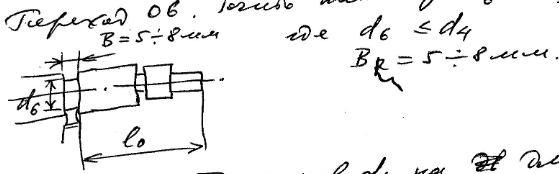 Переход 06. Точить
B = 5÷8 мм где d6 ≤ d4
BR = 5÷8 мм.
d6
l0
на